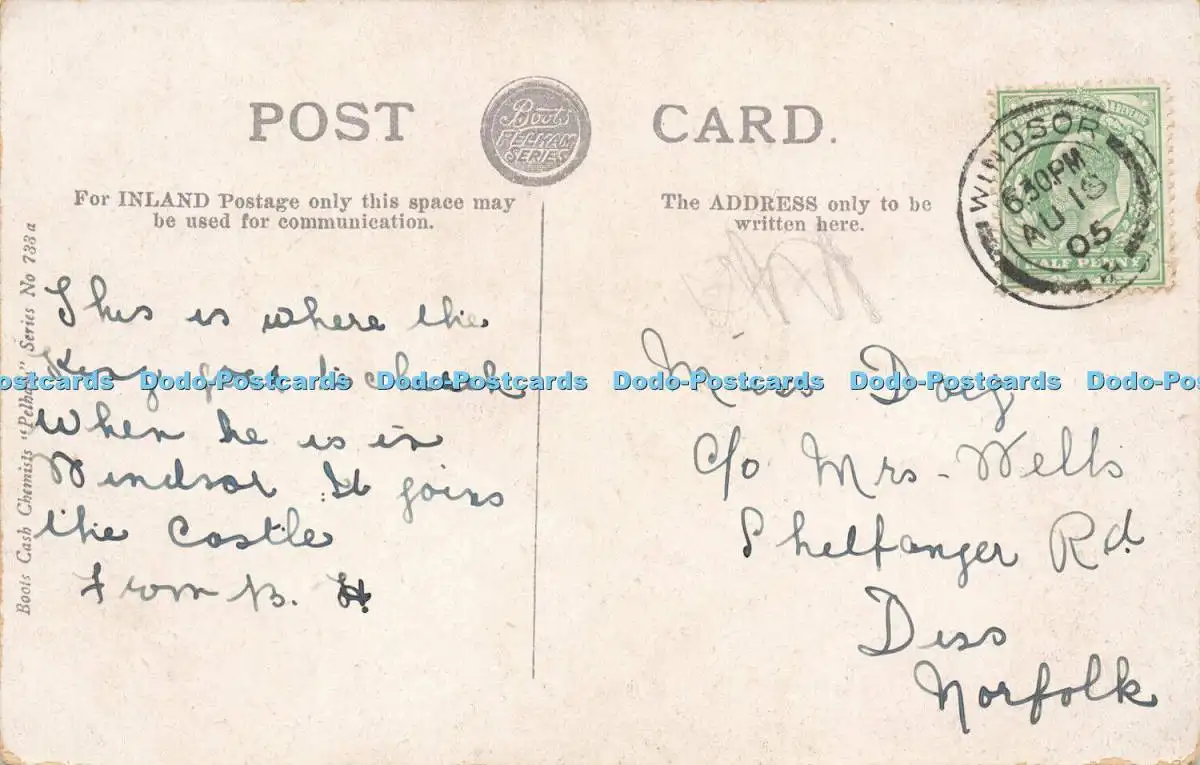 POST CARD.
Boots
PELHAM
SERIES
For INLAND Postage only this space may
be used for communication.
The ADDRESS only to be
written here.
WINDSOR
6.30PM
AU 19
05
HALF PENNY
Boots Cash Chemists "Pelham" Series No 733 a
This is where the
King goes to church
when he is in
Windsor It joins
the Castle
From B. H.
Miss Doig
c/o Mrs - Wells
Shelfanger Rd.
Diss
Norfolk
Dodo-Postcards Dodo-Postcards Dodo-Postcards Dodo-Postcards Dodo-Postcards Dodo-Postcards